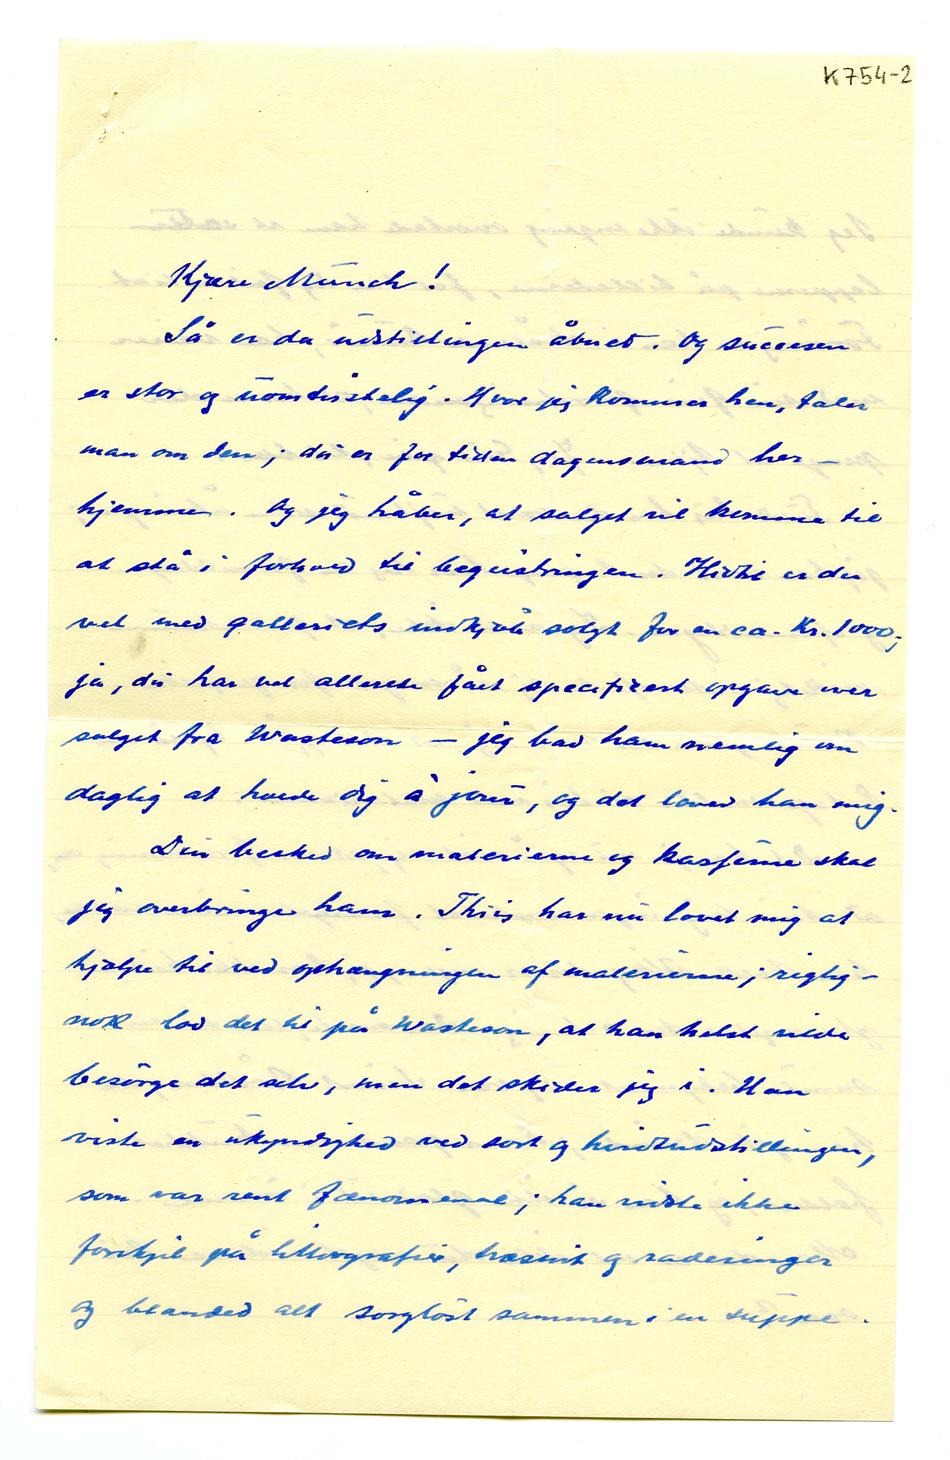 K754-2
Kjære Munch!
Så er da udstillingen åbnet. Og succesen
er stor og uomtvistelig. Hvor jeg kommer hen, taler
man om den; du er for tiden dagensmand her-
hjemme. Og jeg håber, at salget vil komme til
at stå i forhold til begeistringen. Hidtil er der
vel med galleriets indkjøb solgt for en ca. Kr. 1000,-
ja, du har vel allerede fået specificert opgave over
salget fra Wasteson – jeg bad ham nemlig om
daglig at holde dig à jour, og det loved han mig.
Din besked om malerierne og kasserne skal
jeg overbringe ham. Thiis har nu lovet mig at
hjælpe til ved ophængningen af malerierne; rigtig-
nok lod det til på Wasteson, at han helst vilde
besørge det selv, men det skider jeg i. Han
viste en ukyndighed ved sort og hvidtudstillingen,
som var rent fænomenal; han vidste ikke
forskjel på lithografier, træsnit og raderinger
og blanded alt sorgløst sammen i en suppe.